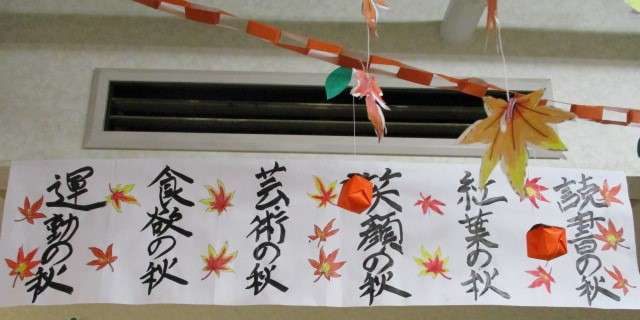 読書の秋
紅葉の秋
笑顔の秋
芸術の秋
食欲の秋
運動の秋